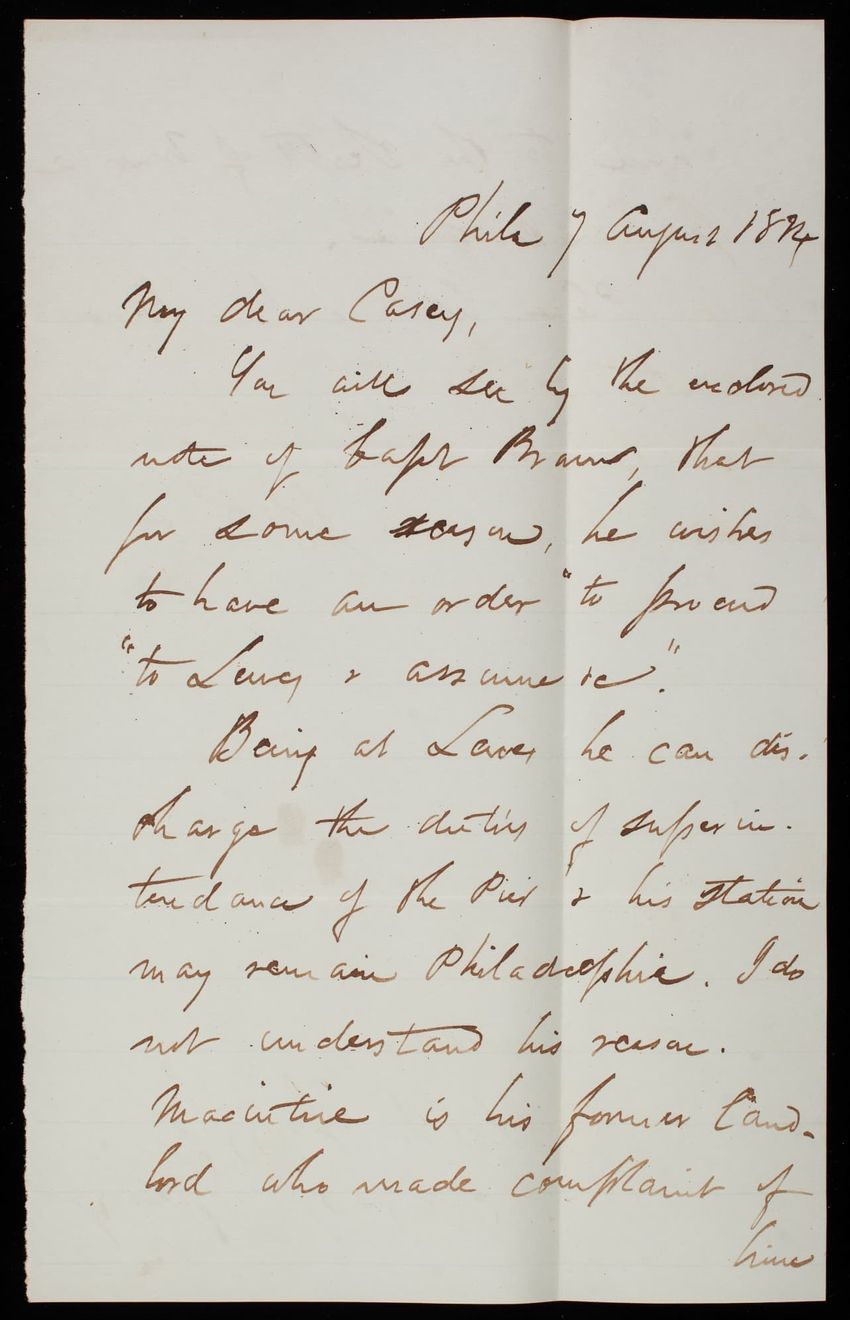 Phila 7 August 1874
My dear Casey,
You will see by the enclosed
note of Capt Brown, that
for some reason, he wishes
to have an order "to proceed
"to Lewes & assume &c".
Being at Lewes he can dis-
charge the duties of superin-
tendance of the Pier & his station
may remain Philadelphia. I do
not understand his reason.
Macintire is his former Land-
lord who made complaint of
him